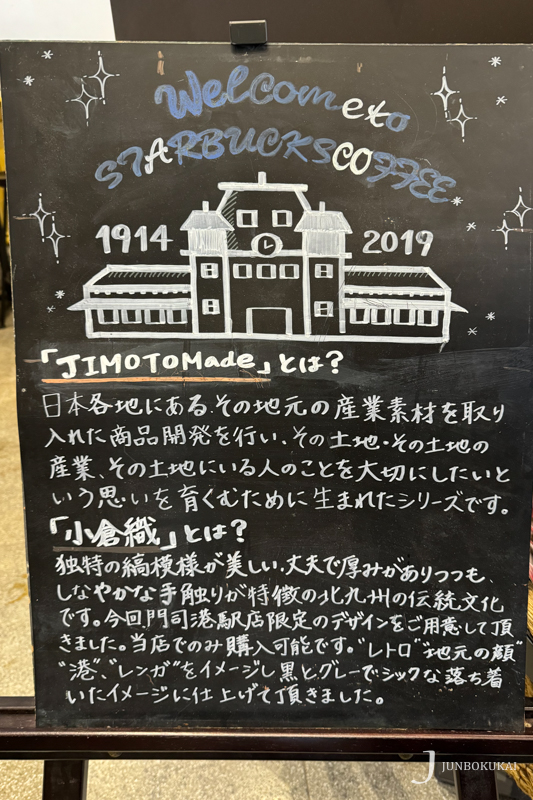 Welcome to
STARBUCKS COFFEE
1914 2019
「JIMOTO Made」とは?
日本各地にある、その地元の産業素材を取り
入れた商品開発を行い、その土地・その土地の
産業、その土地にいる人のことを大切にしたいと
いう思いを育くむために生まれたシリーズです。
「小倉織」とは?
独特の縞模様が美しい、丈夫で厚みがありつつも、
しなやかな手触りが特徴の北九州の伝統文化
です。今回門司港駅店限定のデザインをご用意して頂
きました。当店でのみ購入可能です。"レトロ""地元の顔"
"港"、"レンガ"をイメージし黒とグレーでシックな落ち着
いたイメージに仕上げて頂きました。
J JUNBOKUKAI